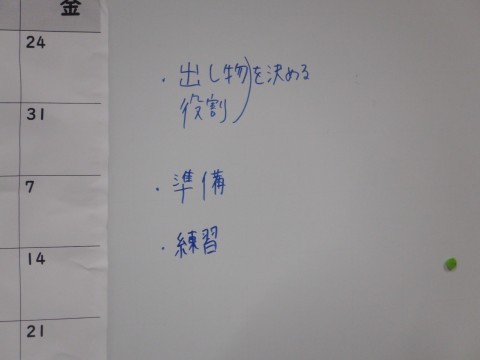 金
24
31
7
14
21
・出し物)を決める
役割
・準備
・練習